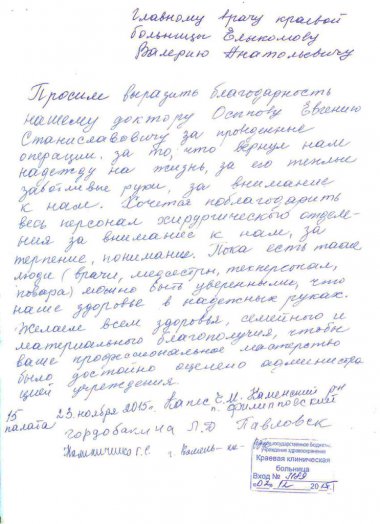 Главному врачу краевой
больницы Елыкомову
Валерию Анатольевичу
Просим выразить благодарность
нашему доктору Осипову Евгению
Станиславовичу за проведенные
операции, за то, что вернул нам
надежду на жизнь, за его теплые
заботливые руки, за внимание
к нам. Хочется поблагодарить
весь персонал хирургического отделе-
ния за внимание к нам, за
терпение, понимание. Пока есть такие
люди (врачи, медсестры, техперсонал,
повара) можно быть уверенными, что
наше здоровье в надежных руках.
Желаем всем здоровья, семейного и
материального благополучия, чтобы
ваше профессиональное мастерство
было достойно оценено администра
цией учреждения.
15 палата
23 ноября 2015г. Каменский р-н
п. Филипповский
Гордобакина Л.Д Павловск
Калиниченко Г.С г Камень-на-
государственное бюджет
учреждение здравоохранения
Краевая клиническая
больница
Вход №
«02» 12 2015 г.